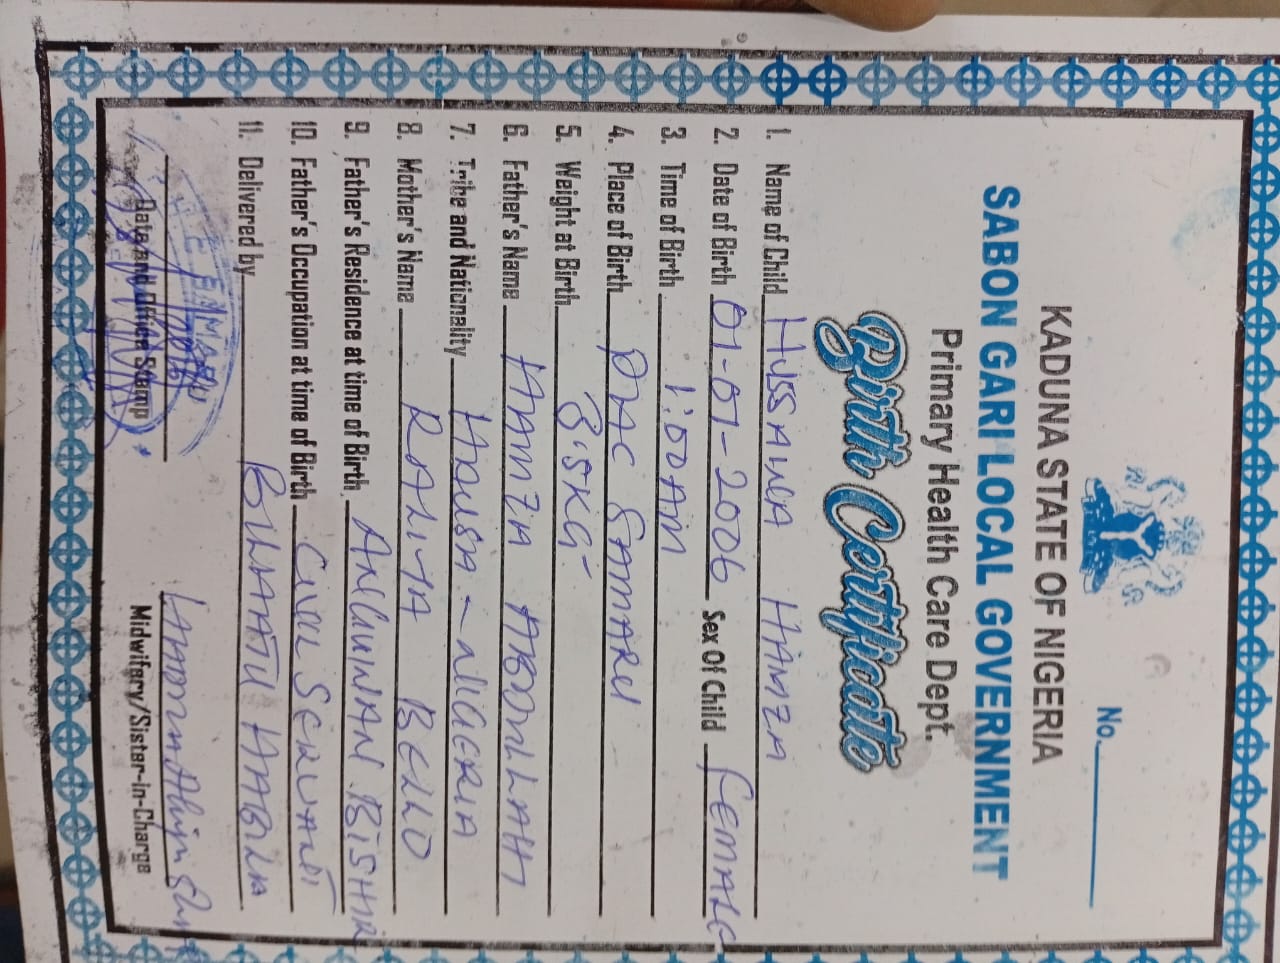 No.
KADUNA STATE OF NIGERIA
SABON GARI LOCAL GOVERNMENT
Primary Health Care Dept.
Birth Certificate
1. Name of Child HUSSAINA HAMZA
2. Date of Birth 01-01-2006 Sex of Child FEMALE
3. Time of Birth 1:00AM
4. Place of Birth PHC SAMARU
5. Weight at Birth 3.5KG
6. Father's Name HAMZA ABDULLAHI
7. Tribe and Nationality HAUSA - NIGERIA
8. Mother's Name RALIYA BELLO
9. Father's Residence at time of Birth ANGUWAN BISHAR
10. Father's Occupation at time of Birth CIVIL SERVANT
11. Delivered by BILKATU HABILA
Date and Office Stamp
Midwifery/Sister-in-Charge